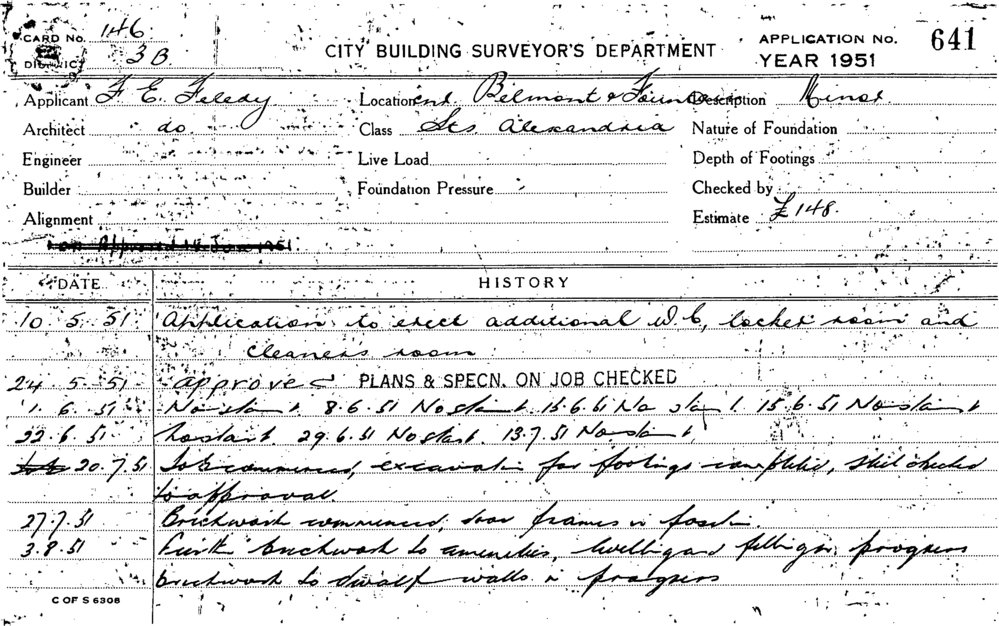 CARD No. 146
DISTRICT 3B
CITY BUILDING SURVEYOR'S DEPARTMENT
APPLICATION No. 641
YEAR 1951
Applicant F E Feledy
Location cnr Belmont & Fountain
Description Minor
Architect do
Class Sts Alexandria
Nature of Foundation
Engineer
Live Load
Depth of Footings
Builder
Foundation Pressure
Checked by
Alignment
Estimate £148.
DATE
HISTORY
10 5 51 Application to erect additional W.C, locker room and
cleaners room
24 5 51 approved PLANS & SPECN. ON JOB CHECKED
1. 6. 51 No start. 8.6.51 No start. 15.6.51 No start. 15.6.51 No start
22.6.51 No start. 29.6.51 No start. 13.7.51 No start
20.7.51 Job commenced, excavation for footings completed, steel checked
to approval
27.7.51 Brickwork commenced, door frames in position.
3.8.51 Further brickwork to amenities, levelling and filling in progress
brickwork to dwarf walls in progress
C OF S 630B